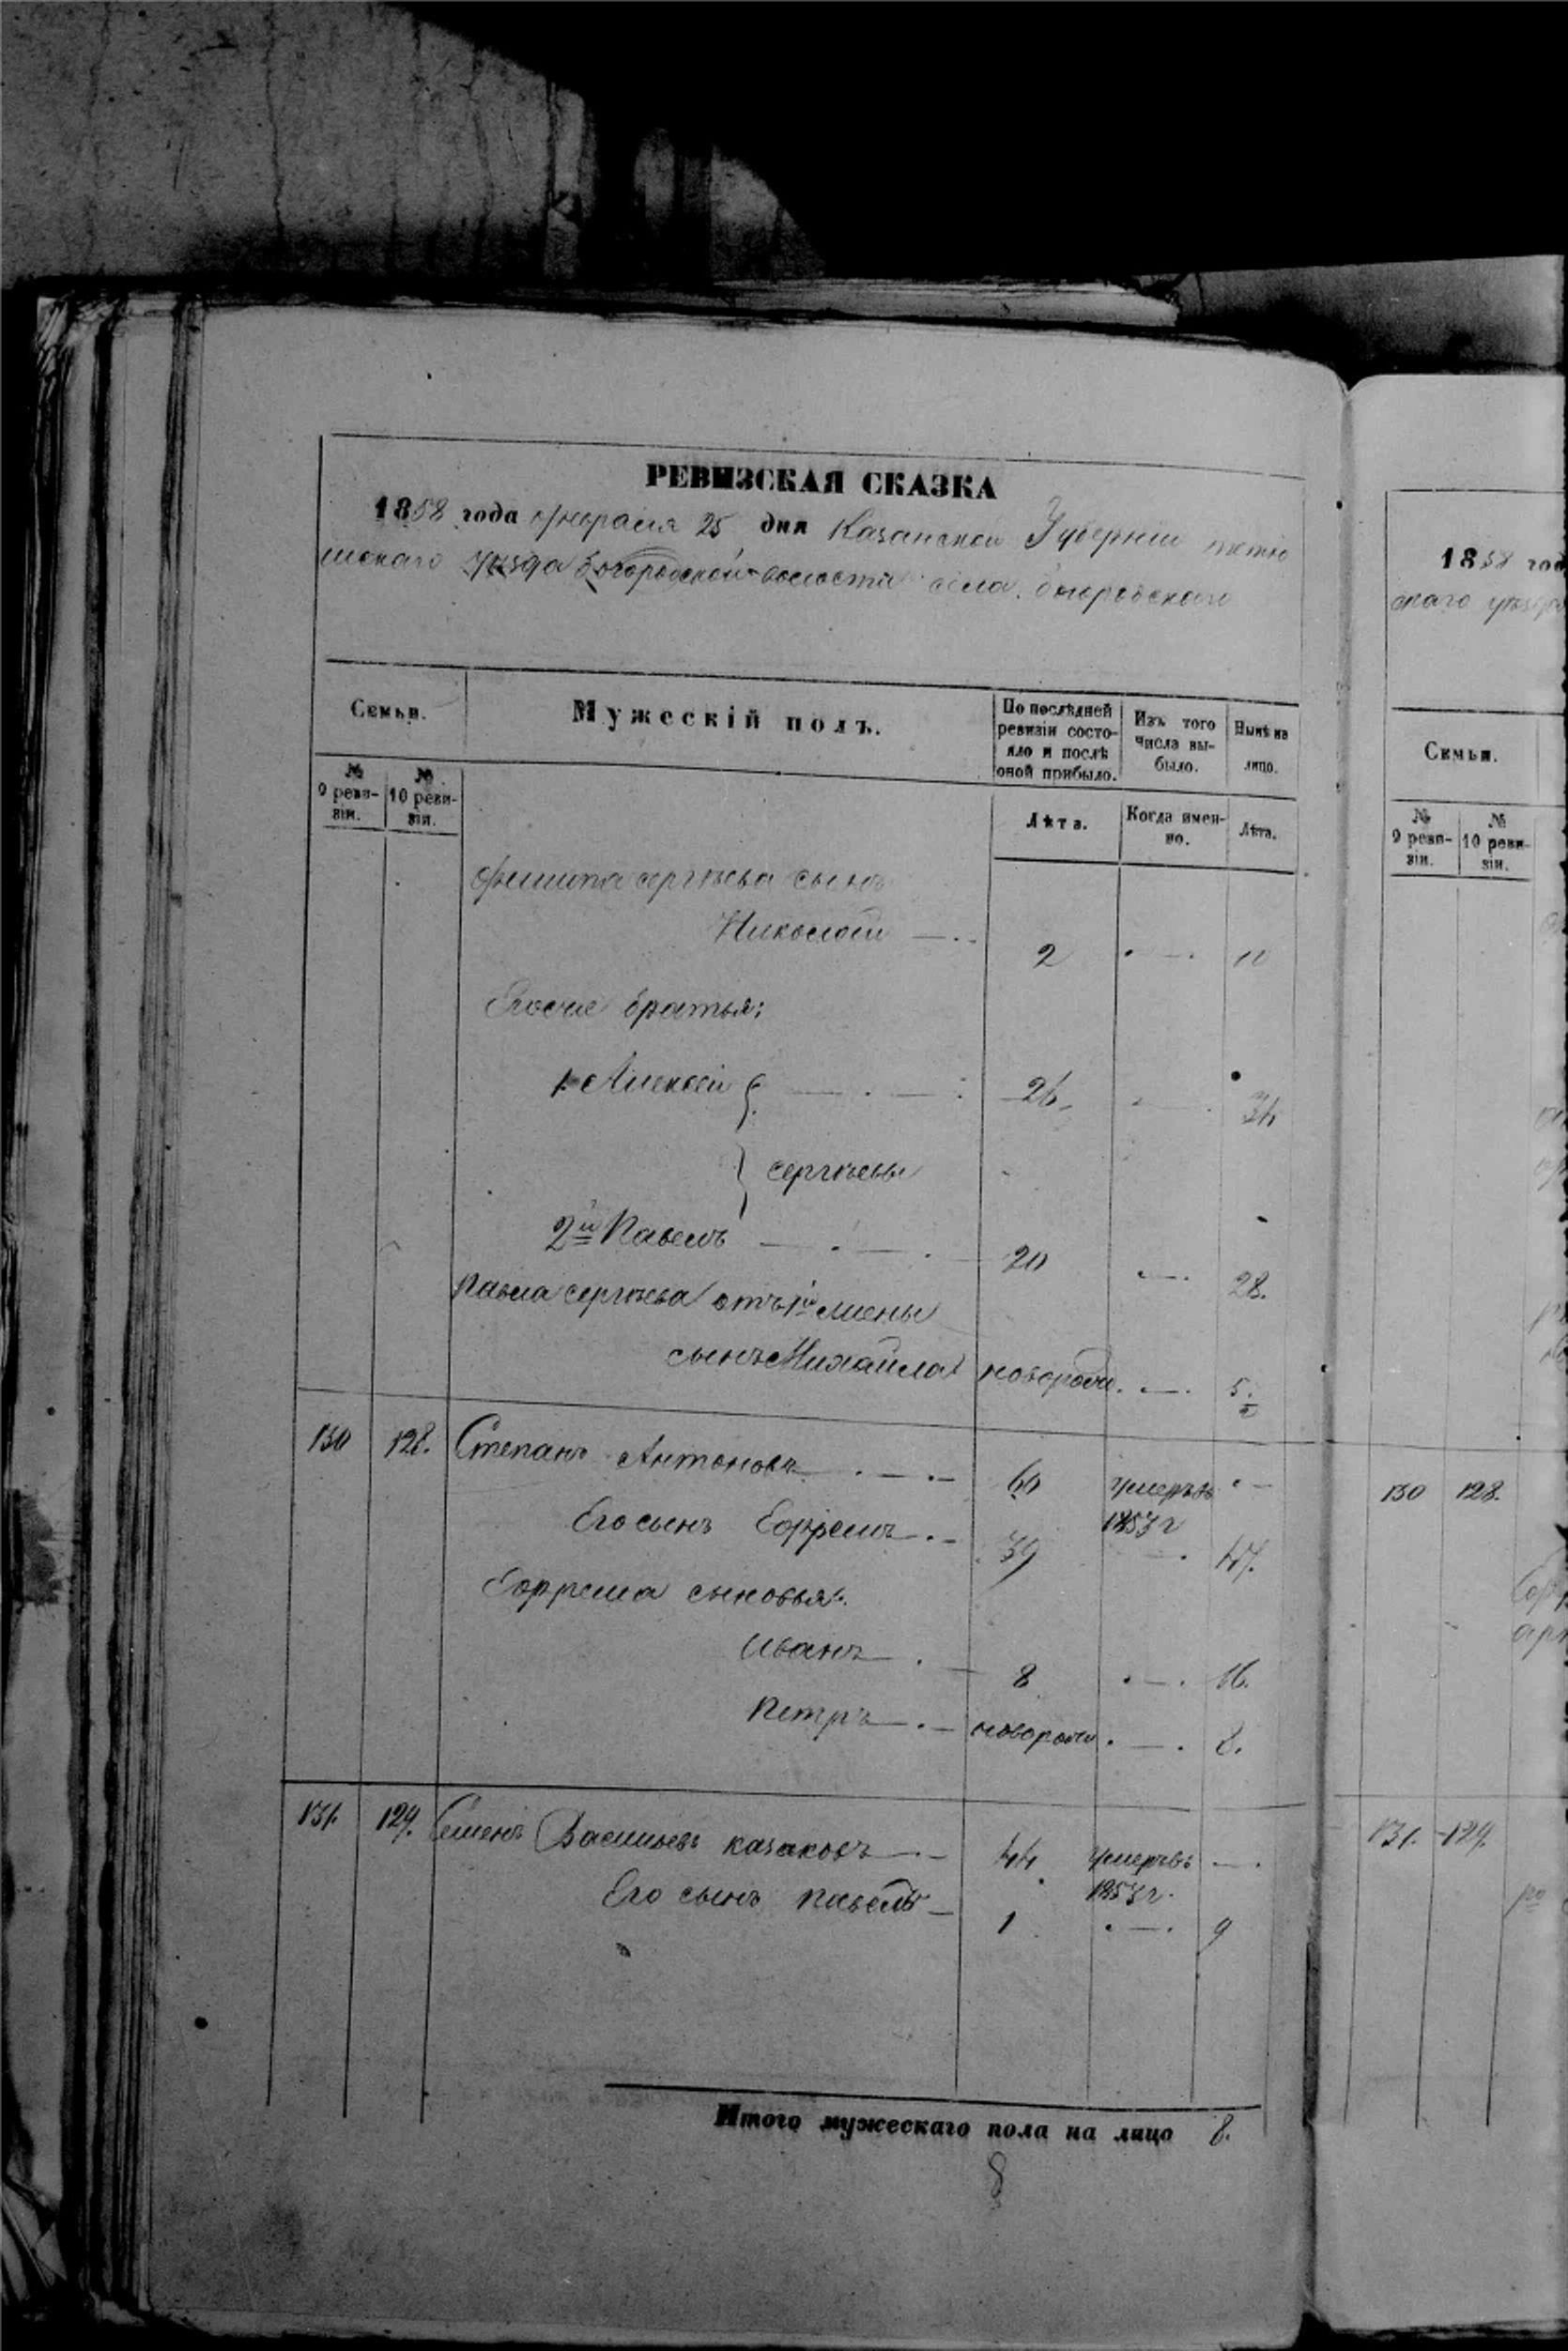 РЕВИЗСКАЯ СКАЗКА
1858 года февраля 25 дня Казанской Губернии тетю
шскаго уезда Богородской волости села
Семьи.
Мужескій полъ.
По послѣдней ревизіи состо-яло и послѣ оной прибыло.
Изъ того числа вы-было.
Нынѣ на лицо.
№ 9 реви-зіи.
№ 10 реви-зіи.
Лѣта.
Когда имен-но.
Лѣта.
Филипа сергѣева сынъ
Николай 2 10
Егоже братья:
1. Алексей 26 34
сергѣевы
2й Павелъ 20 28.
Павла сергѣева отъ 1й жены
сынъ Михайла новорожд. 5 1/2
130 128. Степанъ Антоновъ 60 умеръ въ 1853 г
Его сынъ Ефремъ 39 47.
Ефрема сыновья:
Иванъ 8 16.
Петръ новорожд. 8.
131. 129. Семенъ Васильевъ казаковъ 44 умеръ въ 1853 г.
Его сынъ павелъ 1 9
Итого мужескаго пола на лицо 8.
8
1858 год
скаго уезда
Семьи.
№ 9 реви-зіи.
№ 10 реви-зіи.
130 128.
131. 129.